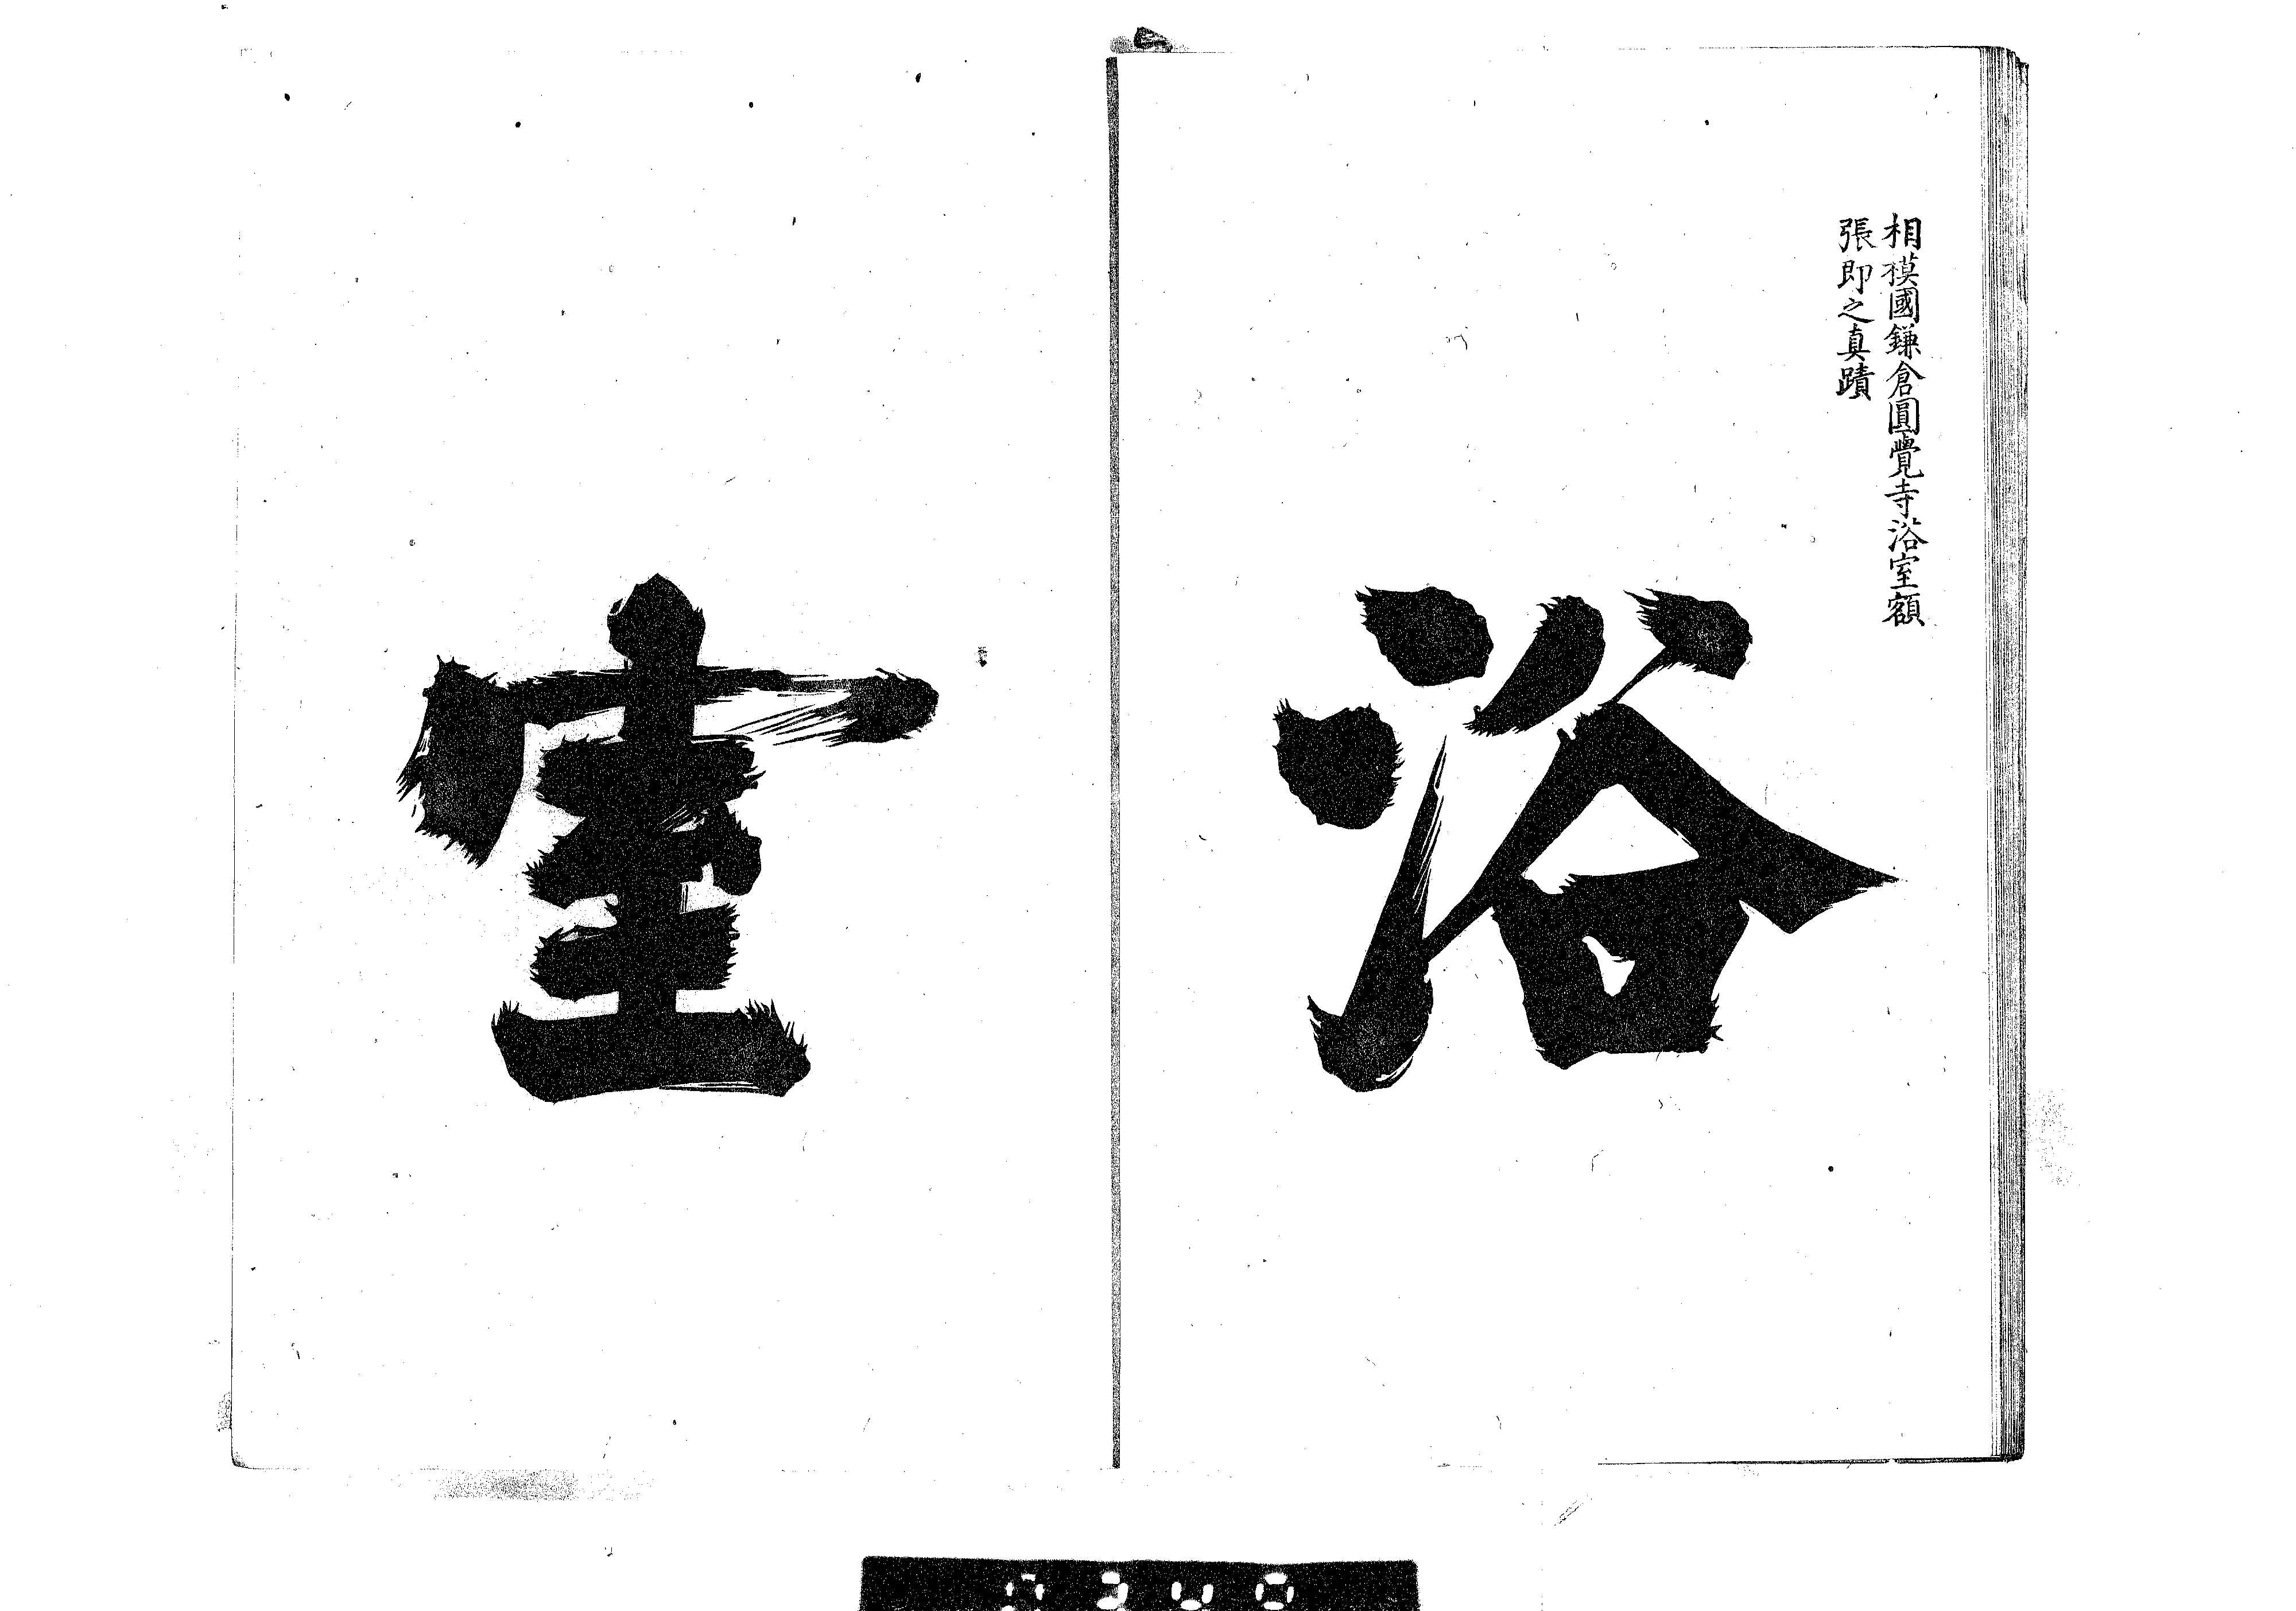 相模國鎌倉圓覺寺浴室額
張即之真蹟
浴
室